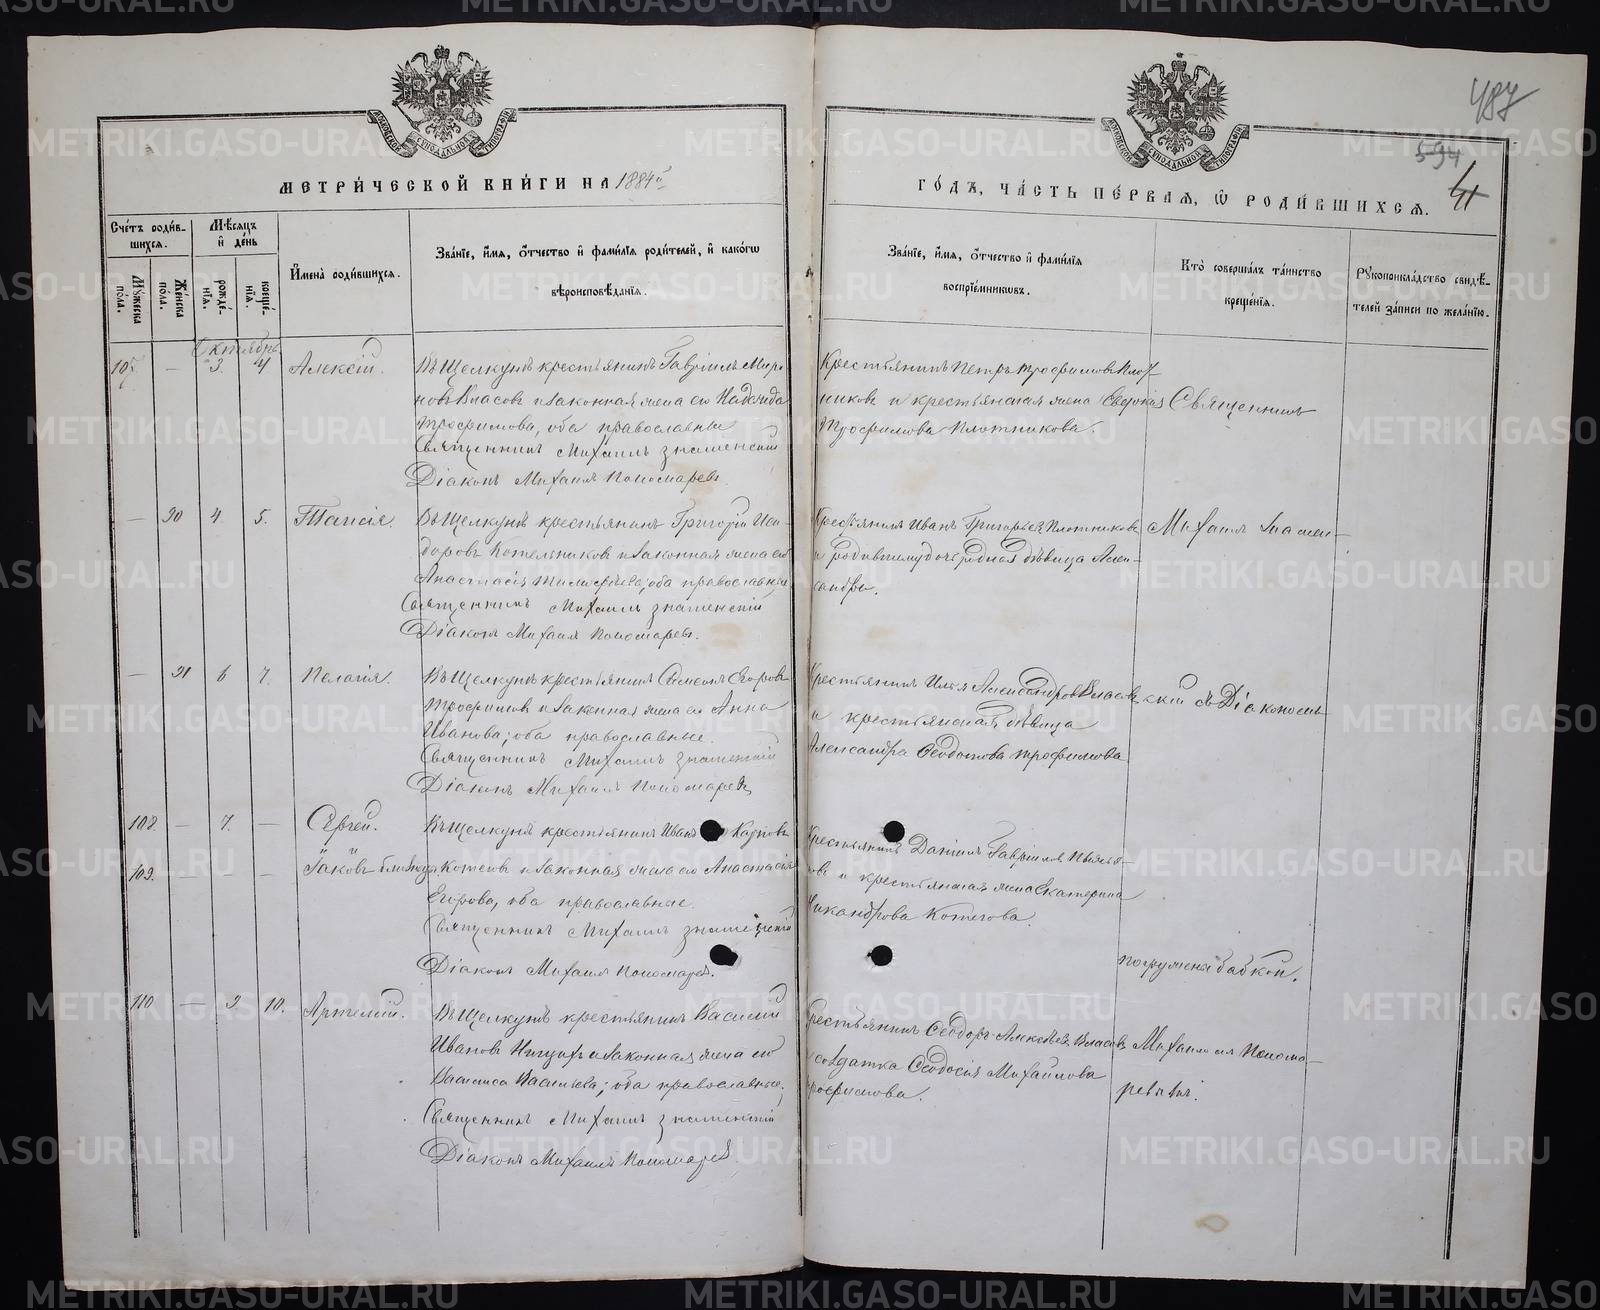 487
594
41
МЕТРИЧЕСКОЙ КНИГИ НА 1884й
ГОДЪ, ЧАСТЬ ПЕРВАЯ, Ѡ РОДИВШИХСЯ.
Счетъ родив-
шихся.
Мѣсяцъ
и день
Имена родившихся.
Званіе, имя, отчество и фамилія родителей, и какогѡ
вѣроисповѣданія.
Мужеска
пола.
Женска
пола.
рожде-
нія.
креще-
нія.
Званіе, имя, отчество и фамилія
воспріемниковъ.
Кто совершалъ таинство
крещенія.
Рукоприкладство свидѣ-
телей записи по желанію.
Октябрь
107 — 3. 4 Алексій.
Въ Щелкунѣ крестьянинъ Гавріилъ Миро-
новъ Власовъ и законная жена его Надежда
Трофимова, оба православные
Священникъ Михаилъ Знаменскій
Діаконъ Михаилъ Пономаревъ
Крестьянинъ Петръ Трофимовъ Плот-
никовъ и крестьянская жена
Трофимова Плотникова.
Священникъ
— 90 4 5. Таисія.
Въ Щелкунѣ крестьянинъ Григорій Иси-
доровъ Котельниковъ и законная жена его
Анастасія Тимофѣева; оба православные
Священникъ Михаилъ Знаменскій
Діаконъ Михаилъ Пономаревъ.
Крестьянинъ Иванъ Григорьевъ Плотниковъ
и дѣвица Алек-
сандра.
Михаилъ Знамен-
— 91 6 7. Пелагія.
Въ Щелкунѣ крестьянинъ Симеонъ Егоровъ
Трофимовъ и законная жена его Анна
Иванова; оба православные.
Священникъ Михаилъ Знаменскій
Діаконъ Михаилъ Пономаревъ
Крестьянинъ Илья Александровъ Власовъ
и крестьянская дѣвица
Александра Ѳеодотова Трофимова
скій съ Діакономъ
108. — 7. — Сергѣй.
и
109. — — — Іаковъ близнецы
Въ Щелкунѣ крестьянинъ Иванъ Карповъ
Котеговъ и законная жена его Анастасія
Егорова, оба православные.
Священникъ Михаилъ Знаменскій
Діаконъ Михаилъ Пономаревъ.
Крестьянинъ Даніилъ Гавріиловъ
и крестьянская жена Екатерина
Никандрова Котегова.
погружены бабкой.
110 — 9 10. Артемій.
Въ Щелкунѣ крестьянинъ Василій
Ивановъ и законная жена его
Василиса Васильева; оба православные.
Священникъ Михаилъ Знаменскій
Діаконъ Михаилъ Пономаревъ.
Крестьянинъ Ѳеодоръ Алексѣевъ Власовъ
и солдатка Ѳеодосія Михайлова
Трофимова.
Михаиломъ Понома-
ревымъ.